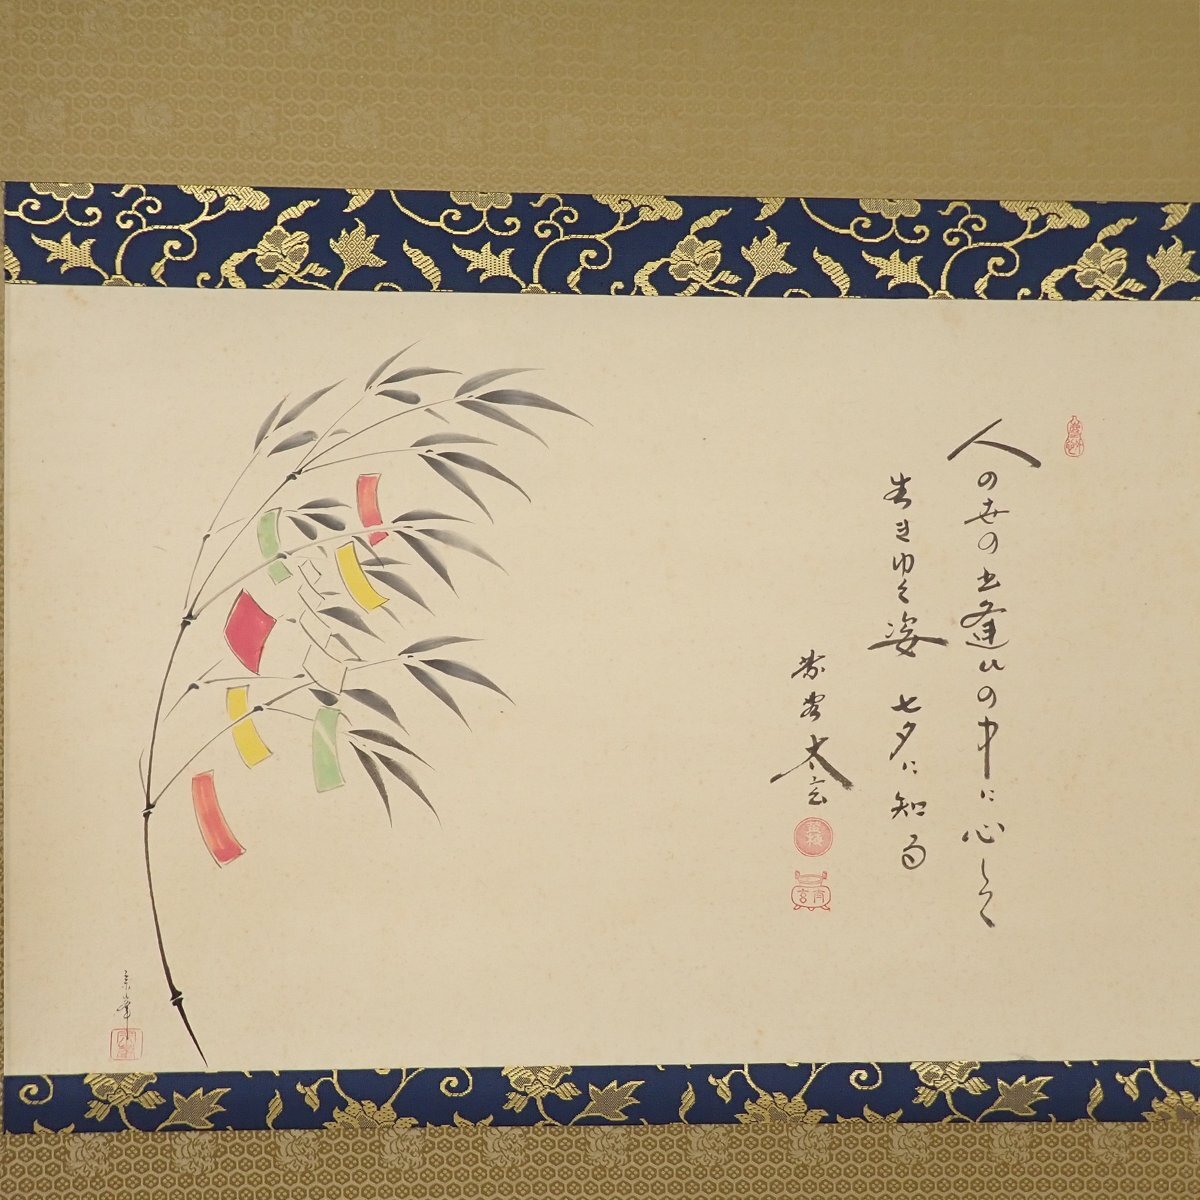 人の世の出逢ひの中に心して
生きゆく姿 七夕に知る
太玄